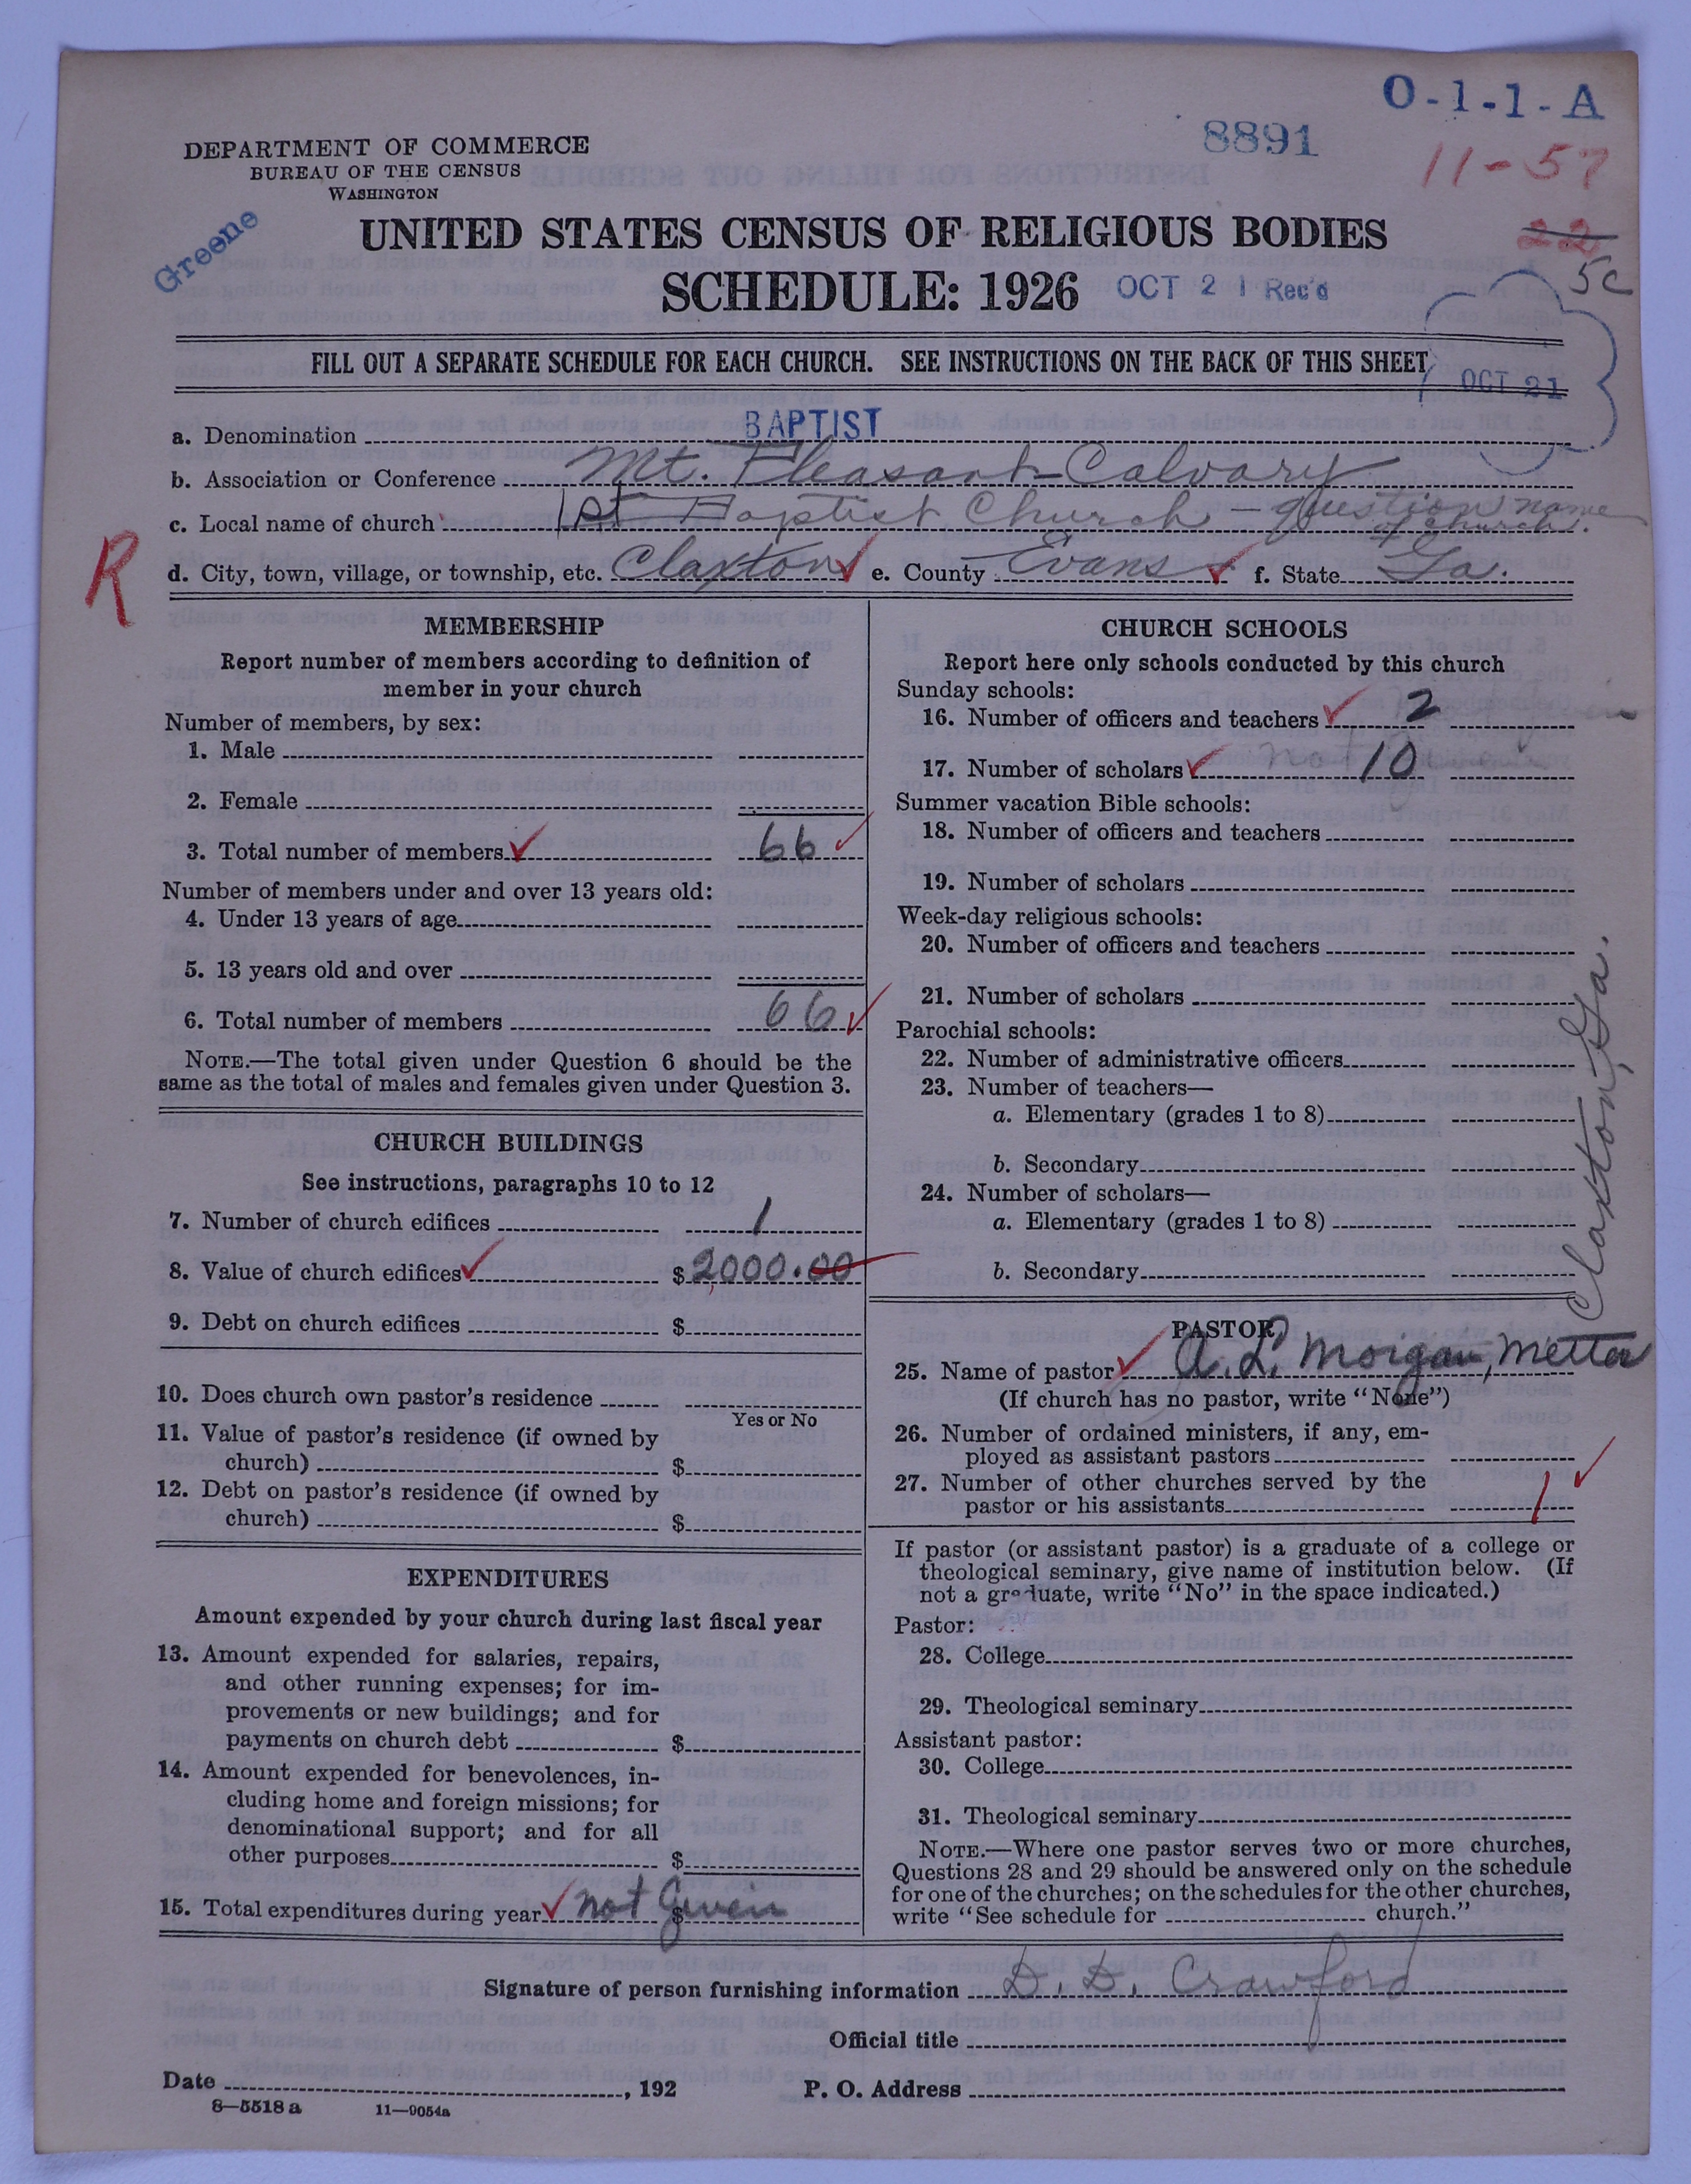 O-1-1-A
8891
11-57
DEPARTMENT OF COMMERCE
BUREAU OF THE CENSUS
WASHINGTON
Greene
UNITED STATES CENSUS OF RELIGIOUS BODIES
22
5c
SCHEDULE: 1926 OCT 21 Rec'd
FILL OUT A SEPARATE SCHEDULE FOR EACH CHURCH. SEE INSTRUCTIONS ON THE BACK OF THIS SHEET
OCT 21
a. Denomination BAPTIST
b. Association or Conference Mt. Pleasant-Calvary
c. Local name of church 1st Baptist Church - question name of church.
R
d. City, town, village, or township, etc. Claxton e. County Evans f. State Ga.
MEMBERSHIP
Report number of members according to definition of
member in your church
Number of members, by sex:
1. Male
2. Female
3. Total number of members 66
Number of members under and over 13 years old:
4. Under 13 years of age
5. 13 years old and over
6. Total number of members 66
NOTE.—The total given under Question 6 should be the
same as the total of males and females given under Question 3.
CHURCH BUILDINGS
See instructions, paragraphs 10 to 12
7. Number of church edifices 1
8. Value of church edifices $2000.00
9. Debt on church edifices $
10. Does church own pastor's residence
Yes or No
11. Value of pastor's residence (if owned by
church) $
12. Debt on pastor's residence (if owned by
church) $
EXPENDITURES
Amount expended by your church during last fiscal year
13. Amount expended for salaries, repairs,
and other running expenses; for im-
provements or new buildings; and for
payments on church debt $
14. Amount expended for benevolences, in-
cluding home and foreign missions; for
denominational support; and for all
other purposes $
15. Total expenditures during year not $ Given
CHURCH SCHOOLS
Report here only schools conducted by this church
Sunday schools:
16. Number of officers and teachers 2
17. Number of scholars not 10
Summer vacation Bible schools:
18. Number of officers and teachers
19. Number of scholars
Week-day religious schools:
20. Number of officers and teachers
21. Number of scholars
Parochial schools:
22. Number of administrative officers
23. Number of teachers—
a. Elementary (grades 1 to 8)
b. Secondary
24. Number of scholars—
a. Elementary (grades 1 to 8)
b. Secondary
Claxton, Ga.
PASTOR
25. Name of pastor A. L. Morgan, Metter
(If church has no pastor, write "None")
26. Number of ordained ministers, if any, em-
ployed as assistant pastors
27. Number of other churches served by the
pastor or his assistants 1
If pastor (or assistant pastor) is a graduate of a college or
theological seminary, give name of institution below. (If
not a graduate, write "No" in the space indicated.)
Pastor:
28. College
29. Theological seminary
Assistant pastor:
30. College
31. Theological seminary
NOTE.—Where one pastor serves two or more churches,
Questions 28 and 29 should be answered only on the schedule
for one of the churches; on the schedules for the other churches,
write "See schedule for church."
Signature of person furnishing information D. D. Crawford
Official title
Date , 192 P. O. Address
8—5518 a 11—9054a